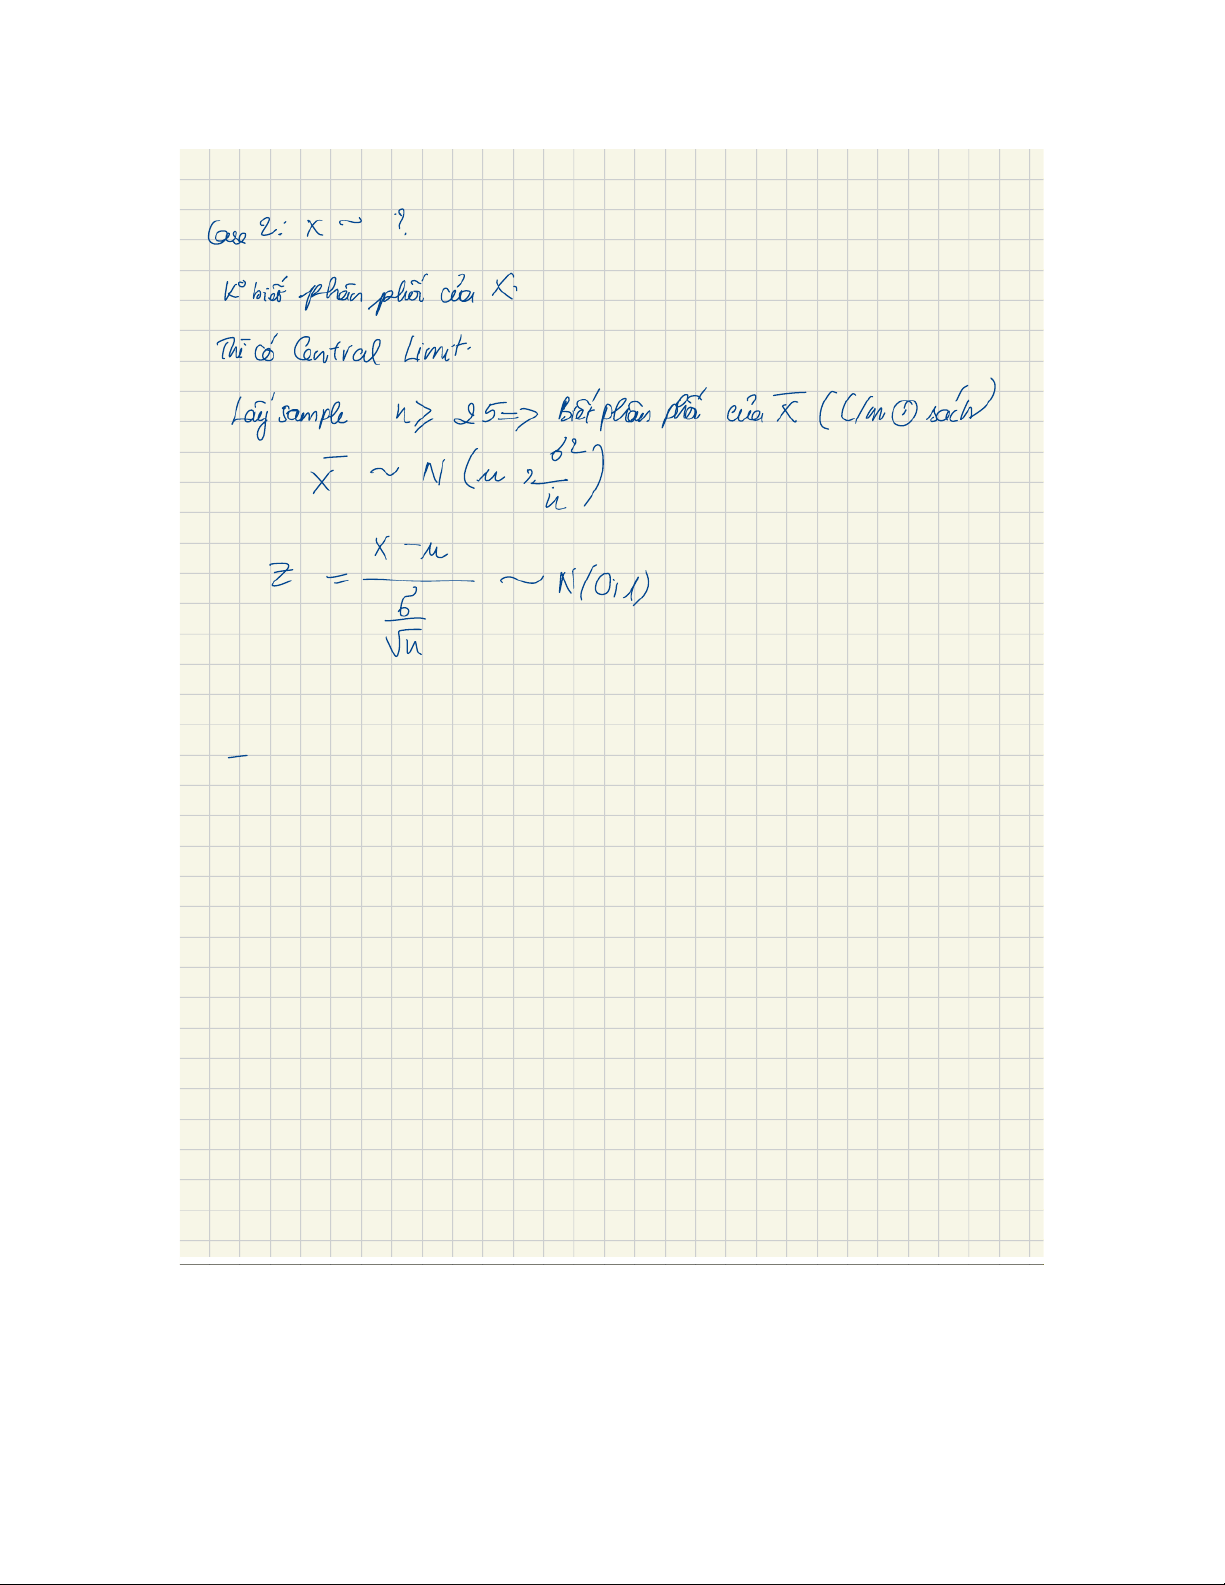 Case 2: X ~ ?
K° biết phân phối của X.
Thì có Central Limit.
Lấy sample n ⩾ 25 => Biết phân phối của X̄ (C/m ở sách)
X̄ ~ N (μ, σ²/n)
Z = (X - μ)/(σ/√n) ~ N(0;1)
-